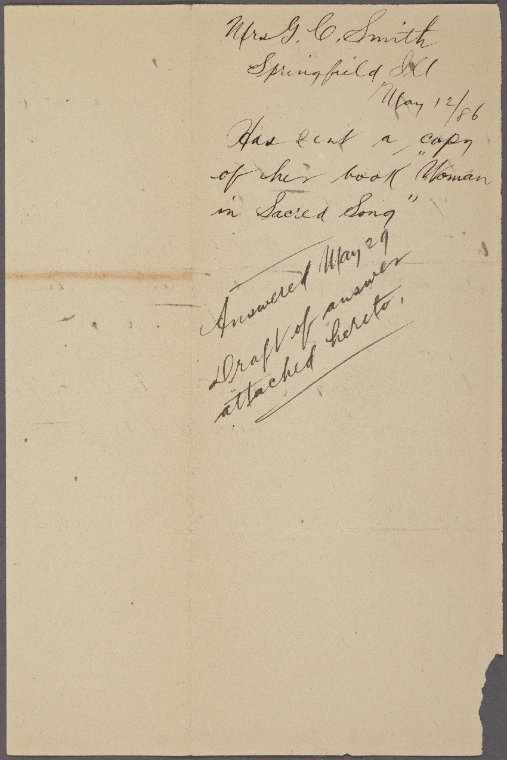 Mrs G. C. Smith
Springfield Ill
May 12/86
Has sent a copy
of her book "Woman
in Sacred Song"
Answered May 29
Draft of answer
attached hereto.